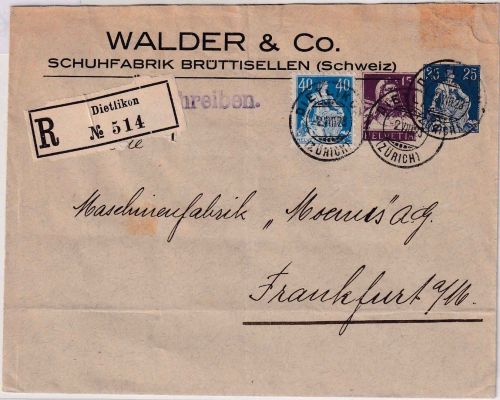 WALDER & Co.
SCHUHFABRIK BRÜTTISELLEN (Schweiz)
Dietlikon
R
№ 514
chreiben.
40 40
15
HELVETIA
25 25
(ZÜRICH)
(ZÜRICH)
Maschinenfabrik „Moenus" A.G.
Frankfurt a/M.